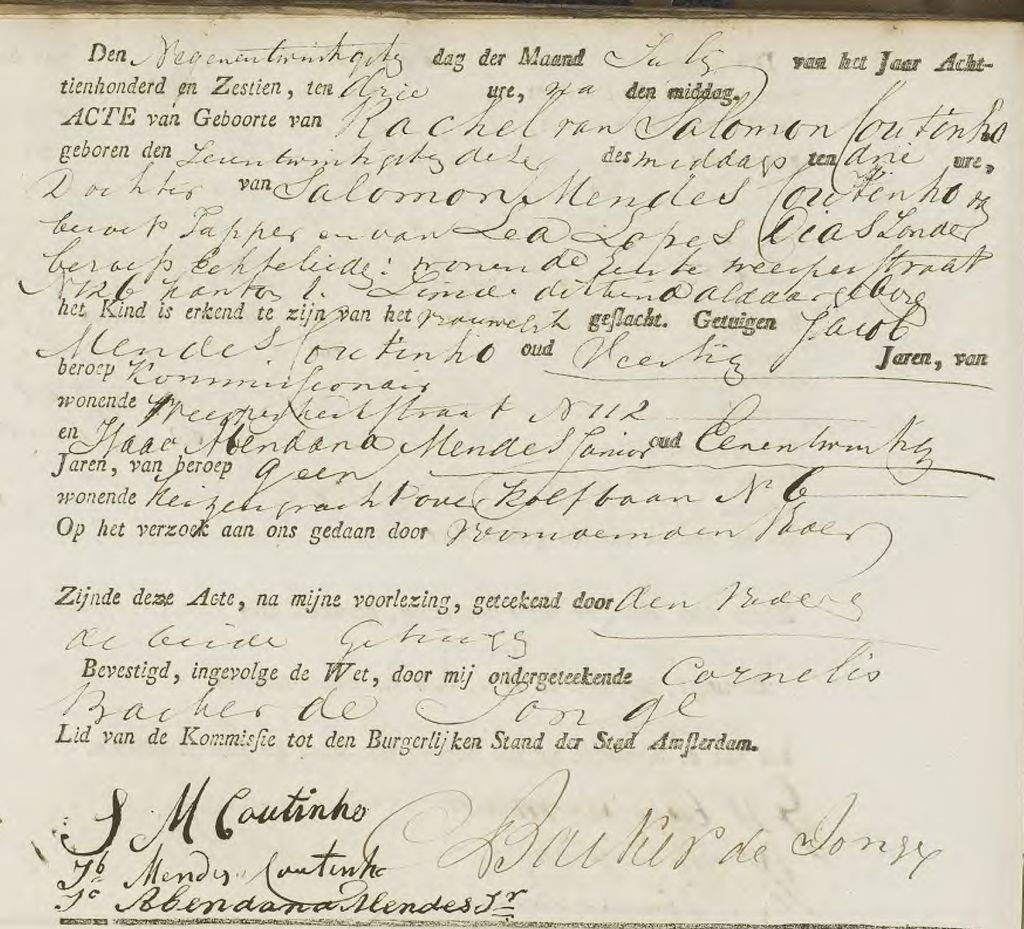 Den Negenentwintigste dag der Maand July van het Jaar Acht-
tienhonderd en Zestien, ten drie ure, na den middag.
ACTE van Geboorte van Rachel van Salomon Coutinho
geboren den Zevenentwintigste deze des middags ten drie ure,
Dochter van Salomon Mendes Coutinho van
beroep Tapper en van Lea Lopes Dias Zonder
beroep Echteliede: wonende Eerste weesperstraat
N 126 kanton 1. aldaar gebore
het Kind is erkend te zijn van het vrouwelyk geslacht. Getuigen Jacob
Mendes Coutinho oud Veertig Jaren, van
beroep Kommissionair
wonende Weesperkerkstraat N 112
en Isaac Abendana Mendes Junior oud Eenentwintig
Jaren, van beroep geen
wonende Keizersgracht over Kolfbaan N 6
Op het verzoek aan ons gedaan door voornoemden Vader
Zijnde deze Acte, na mijne voorlezing, geteekend door den Vader
de beide Getuige
Bevestigd, ingevolge de Wet, door mij ondergeteekende Cornelis
Backer de Jonge
Lid van de Kommissie tot den Burgerlijken Stand der Stad Amsterdam.
S M Coutinho
Backer de Jonge
Jb Mendes Coutinho
Jc Abendana Mendes Jr